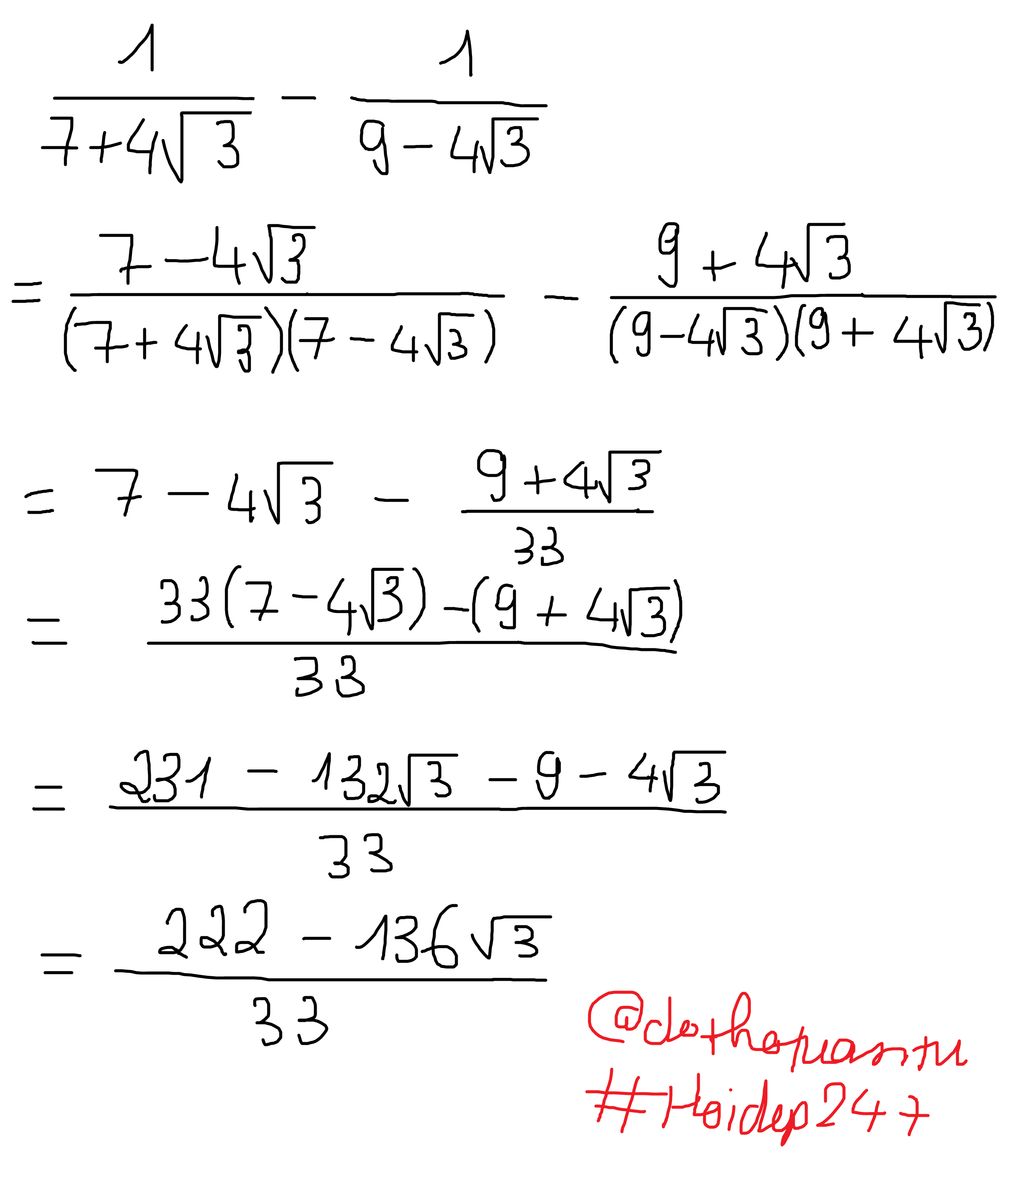 1/(7+4√3) − 1/(9−4√3)
= (7−4√3)/((7+4√3)(7−4√3)) − (9+4√3)/((9−4√3)(9+4√3))
= 7 − 4√3 − (9+4√3)/33
= (33(7−4√3) −(9+4√3))/33
= (231 − 132√3 − 9 − 4√3)/33
= (222 − 136√3)/33
#Hoidap247